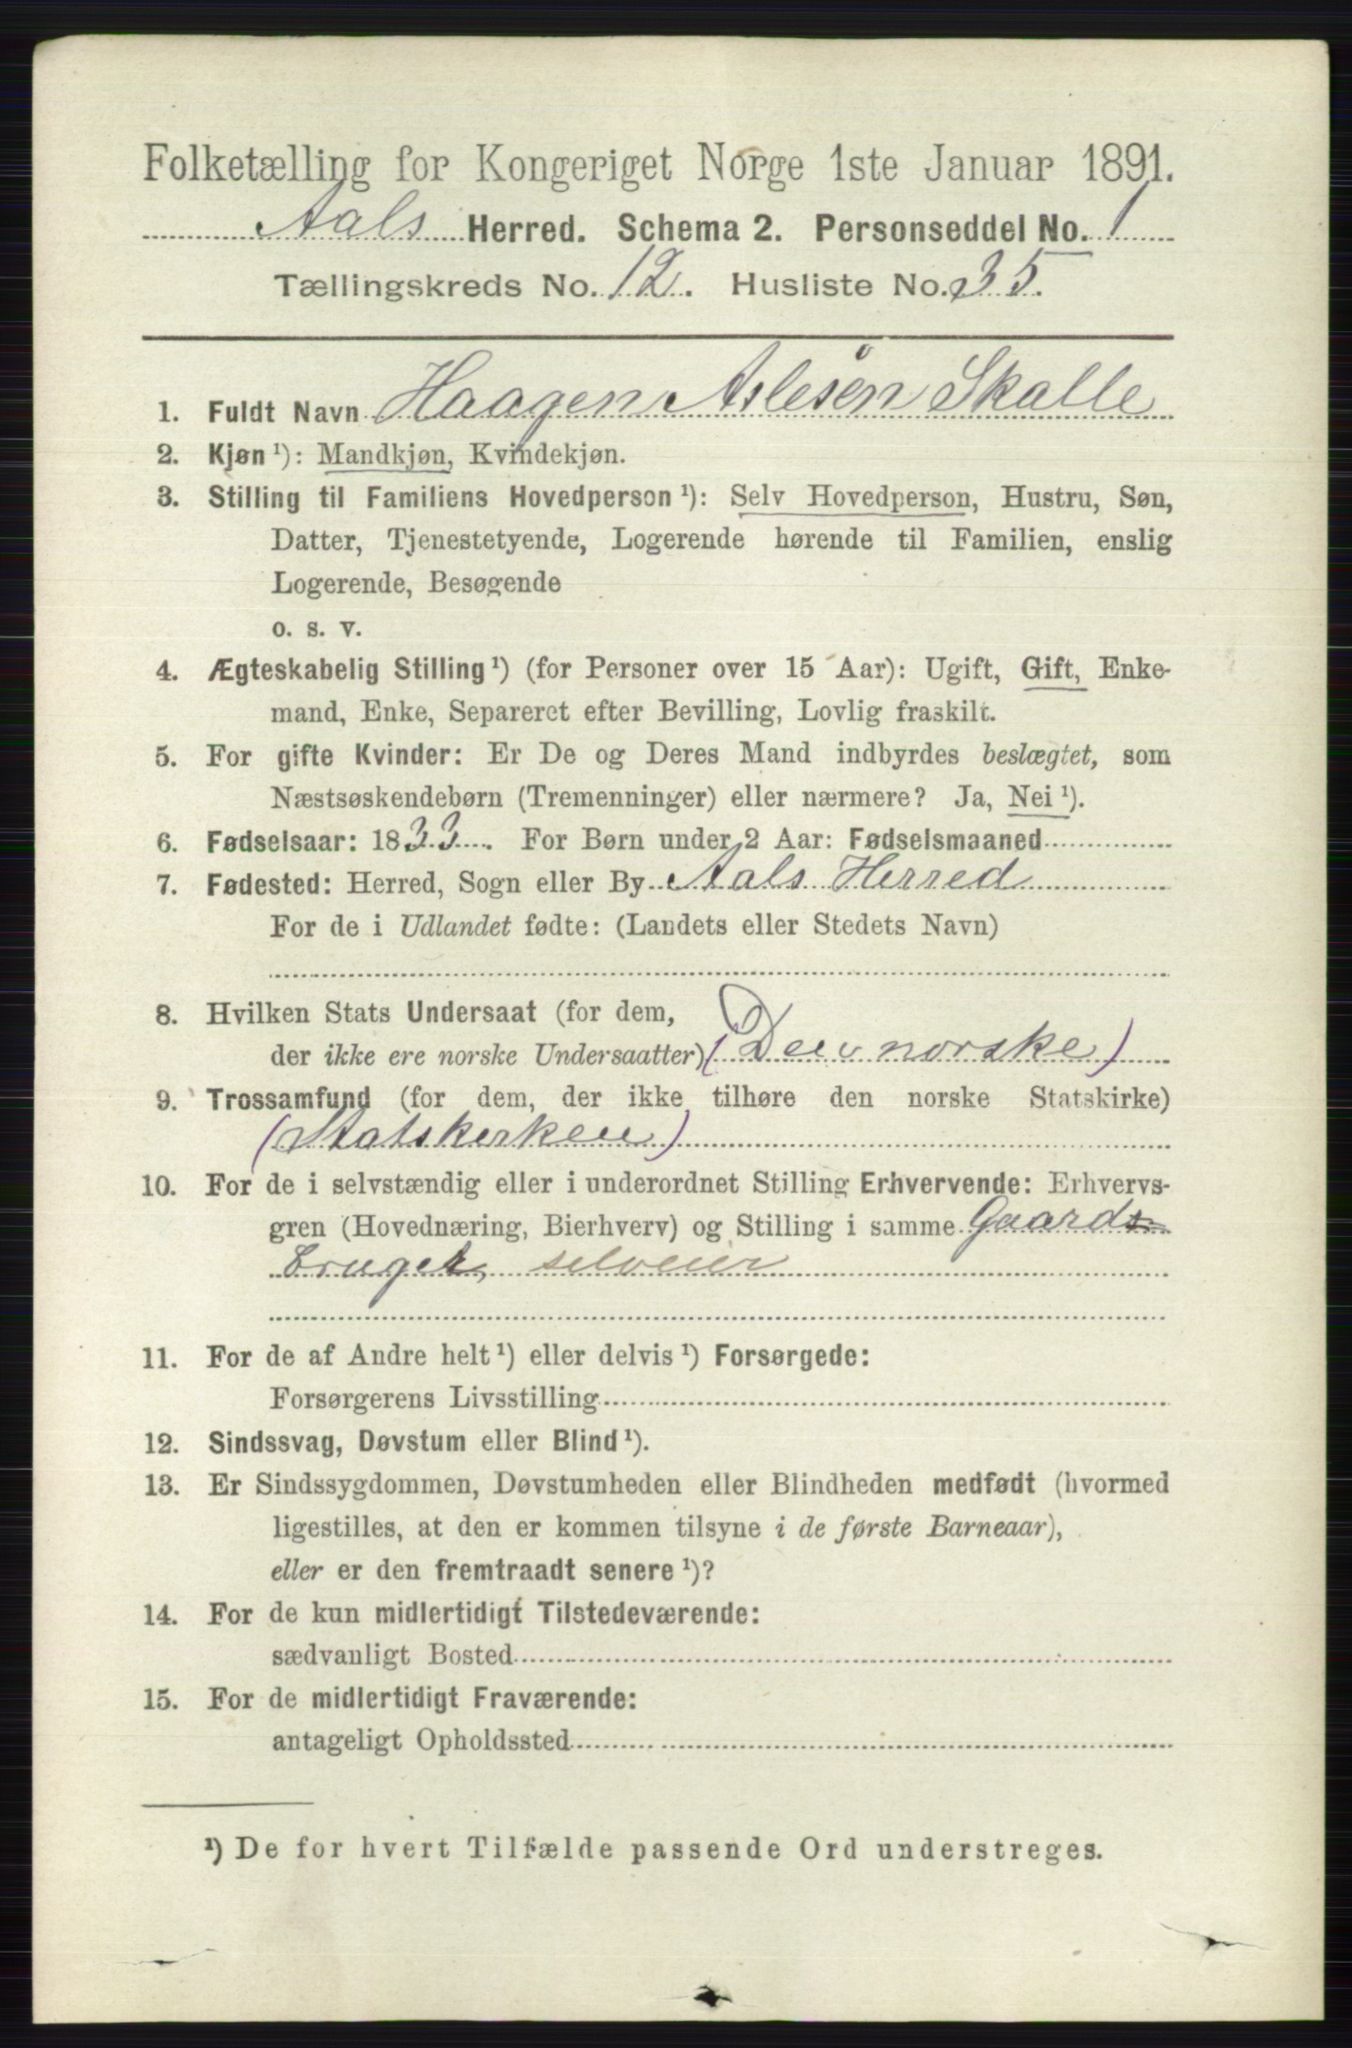 Folketælling for Kongeriget Norge 1ste Januar 1891.
Aals Herred. Schema 2. Personseddel No. 1
Tællingskreds No. 12. Husliste No. 35.
1. Fuldt Navn Haagen Aslesen Skalle
2. Kjøn ¹): Mandkjøn, Kvindekjøn.
3. Stilling til Familiens Hovedperson ¹): Selv Hovedperson, Hustru, Søn,
Datter, Tjenestetyende, Logerende hørende til Familien, enslig
Logerende, Besøgende
o. s. v.
4. Ægteskabelig Stilling ¹) (for Personer over 15 Aar): Ugift, Gift, Enke-
mand, Enke, Separeret efter Bevilling, Lovlig fraskilt.
5. For gifte Kvinder: Er De og Deres Mand indbyrdes beslægtet, som
Næstsøskendebørn (Tremenninger) eller nærmere? Ja, Nei ¹).
6. Fødselsaar: 1833. For Børn under 2 Aar: Fødselsmaaned
7. Fødested: Herred, Sogn eller By Aals Herred
For de i Udlandet fødte: (Landets eller Stedets Navn)
8. Hvilken Stats Undersaat (for dem,
der ikke ere norske Undersaatter) (Den norske)
9. Trossamfund (for dem, der ikke tilhøre den norske Statskirke)
(Statskirken)
10. For de i selvstændig eller i underordnet Stilling Erhvervende: Erhvervs-
gren (Hovednæring, Bierhverv) og Stilling i samme Gaard-
bruger, selveier
11. For de af Andre helt ¹) eller delvis ¹) Forsørgede:
Forsørgerens Livsstilling
12. Sindssvag, Døvstum eller Blind ¹).
13. Er Sindssygdommen, Døvstumheden eller Blindheden medfødt (hvormed
ligestilles, at den er kommen tilsyne i de første Barneaar),
eller er den fremtraadt senere ¹)?
14. For de kun midlertidigt Tilstedeværende:
sædvanligt Bosted
15. For de midlertidigt Fraværende:
antageligt Opholdssted
¹) De for hvert Tilfælde passende Ord understreges.